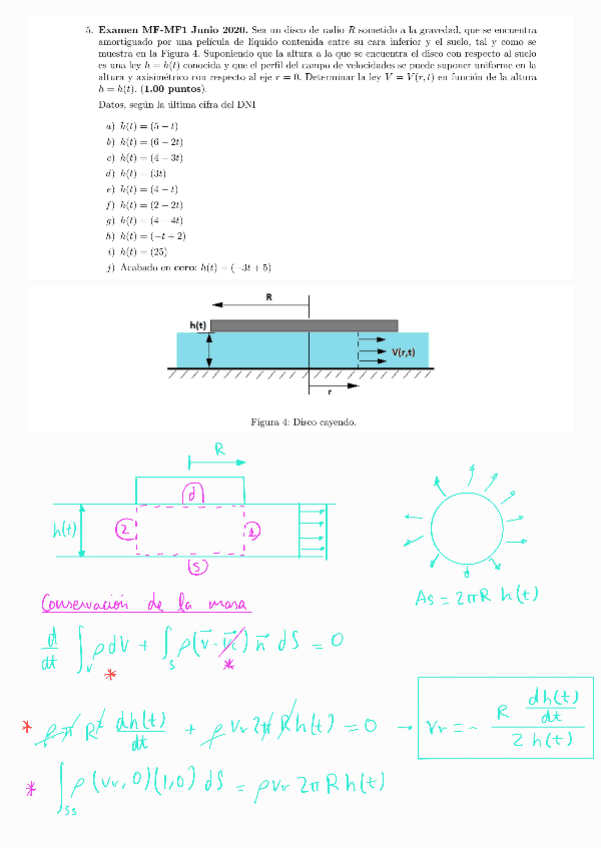 5. Examen MF-MF1 Junio 2020. Sea un disco de radio R sometido a la gravedad, que se encuentra
amortiguado por una película de líquido contenida entre su cara inferior y el suelo, tal y como se
muestra en la Figura 4. Suponiendo que la altura a la que se encuentra el disco con respecto al suelo
es una ley h = h(t) conocida y que el perfil del campo de velocidades se puede suponer uniforme en la
altura y axisimétrico con respecto al eje r = 0. Determinar la ley V = V(r, t) en función de la altura
h = h(t). (1.00 puntos).
Datos, según la última cifra del DNI
a) h(t) = (5 − t)
b) h(t) = (6 − 2t)
c) h(t) = (4 − 3t)
d) h(t) = (3t)
e) h(t) = (4 − t)
f) h(t) = (2 − 2t)
g) h(t) = (4 − 4t)
h) h(t) = (−t + 2)
i) h(t) = (25)
j) Acabado en cero: h(t) = (−3t + 5)
R
h(t)
V(r,t)
r
Figura 4: Disco cayendo.
R
d
h(t)
2
s
As = 2πR h(t)
Conservación de la masa
d/dt ∫v ρdV + ∫s ρ(v̄ - v̄c) n̄ dS = 0
* *
* ρπ R² dh(t)/dt + ρ Vr 2π R h(t) = 0 → Vr = - R dh(t)/dt / 2 h(t)
* ∫ss ρ (Vr, 0)(1,0) dS = ρVr 2π R h(t)